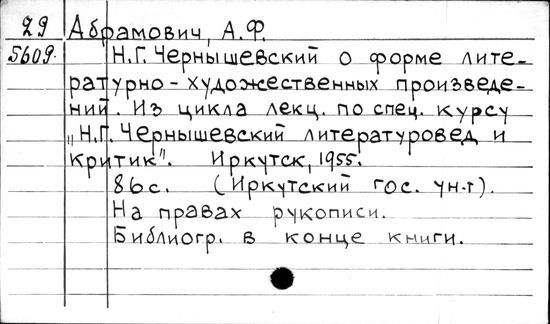 29 Абрамович, А.Ф.
5609. Н.Г. Чернышевский о форме лите-
ратурно-художественных произведе-
ний. Из цикла лекц. по спец. курсу
„Н.Г. Чернышевский литературовед и
критик". Иркутск, 1955.
86с. (Иркутский гос. ун-т).
На правах рукописи.
Библиогр. в конце книги.